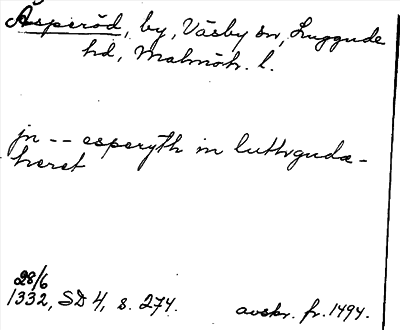 Äsperöd, by, Väsby sn, Luggude
hd, Malmöh. l.
jn -- esperyth in luthgudæ-
heret
28/6
1332, SD 4, s. 274.
avskr. fr. 1494.